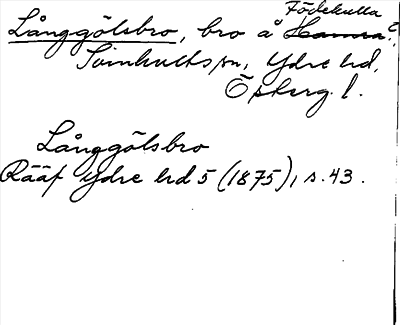 Långgölsbro, bro å Födekulla ~~Hamra~~?,
Svinhults sn, Ydre hd,
Österg. l.
Långgölsbro
Rääf Ydre hd 5 (1875), s. 43.